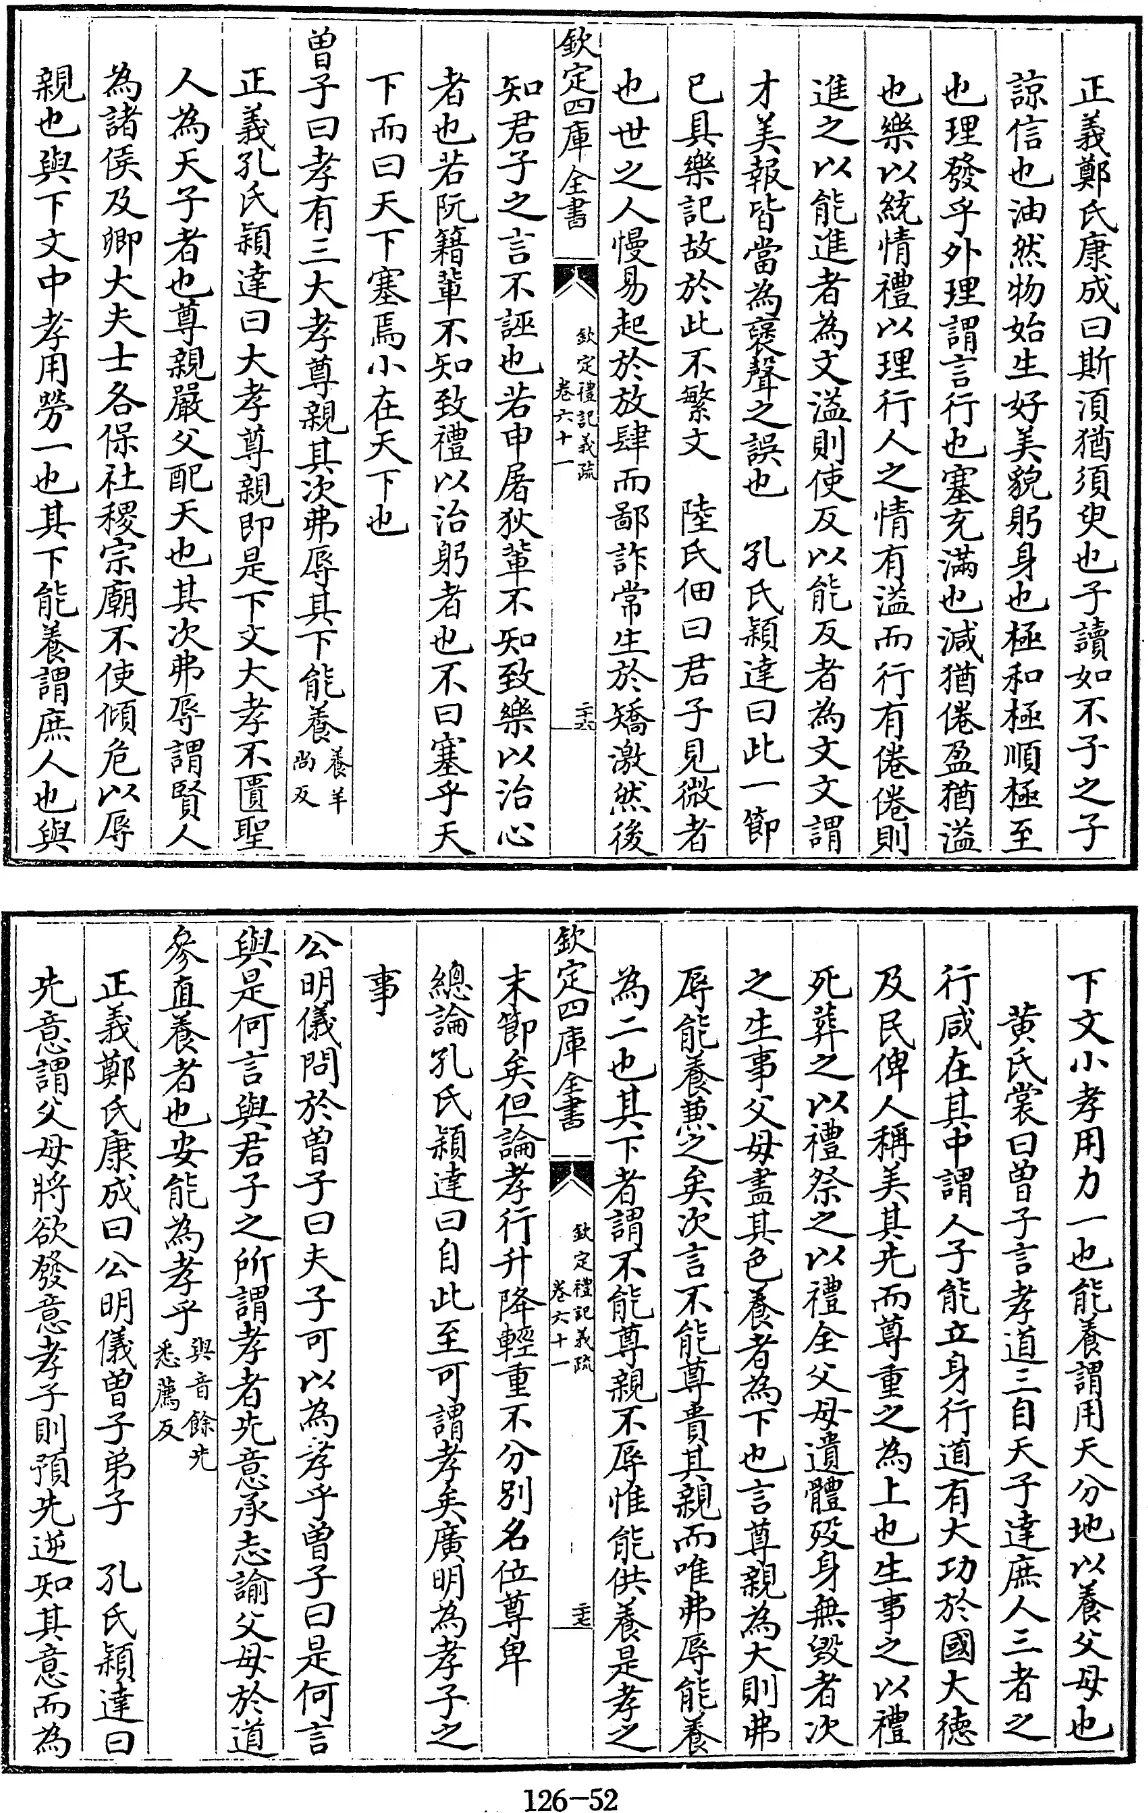 正義鄭氏康成曰斯須猶須臾也子讀如不子之子
諒信也油然物始生好美貌躬身也極和極順極至
也理發乎外理謂言行也塞充滿也減猶倦盈猶溢
也樂以統情禮以理行人之情有溢而行有倦倦則
進之以能進者為文溢則使反以能反者為文文謂
才美報皆當為襃聲之誤也　孔氏穎達曰此一節
已具樂記故於此不繁文　陸氏佃曰君子見微者
也世之人慢易起於放肆而鄙詐常生於矯激然後
欽定四庫全書
欽定禮記義疏
卷六十一
二十六
知君子之言不誣也若申屠狄輩不知致樂以治心
者也若阮籍輩不知致禮以治躬者也不曰塞乎天
下而曰天下塞焉小在天下也
曾子曰孝有三大孝尊親其次弗辱其下能養養羊尚反
正義孔氏穎達曰大孝尊親即是下文大孝不匱聖
人為天子者也尊親嚴父配天也其次弗辱謂賢人
為諸侯及卿大夫士各保社稷宗廟不使傾危以辱
親也與下文中孝用勞一也其下能養謂庶人也與
下文小孝用力一也能養謂用天分地以養父母也
黄氏裳曰曽子言孝道三自天子達庶人三者之
行咸在其中謂人子能立身行道有大功於國大徳
及民俾人稱美其先而尊重之為上也生事之以禮
死葬之以禮祭之以禮全父母遺體殁身無毁者次
之生事父母盡其色養者為下也言尊親為大則弗
辱能養兼之矣次言不能尊貴其親而唯弗辱能養
為二也其下者謂不能尊親不辱惟能供養是孝之
欽定四庫全書
欽定禮記義疏
卷六十一
二十七
末節矣但論孝行升降輕重不分别名位尊卑
總論孔氏穎達曰自此至可謂孝矣廣明為孝子之
事
公明儀問於曽子曰夫子可以為孝乎曽子曰是何言
與是何言與君子之所謂孝者先意承志諭父母於道
參直養者也安能為孝乎與音餘先悉薦反
正義鄭氏康成曰公明儀曽子弟子　孔氏穎達曰
先意謂父母將欲發意孝子則預先逆知其意而為
126-52